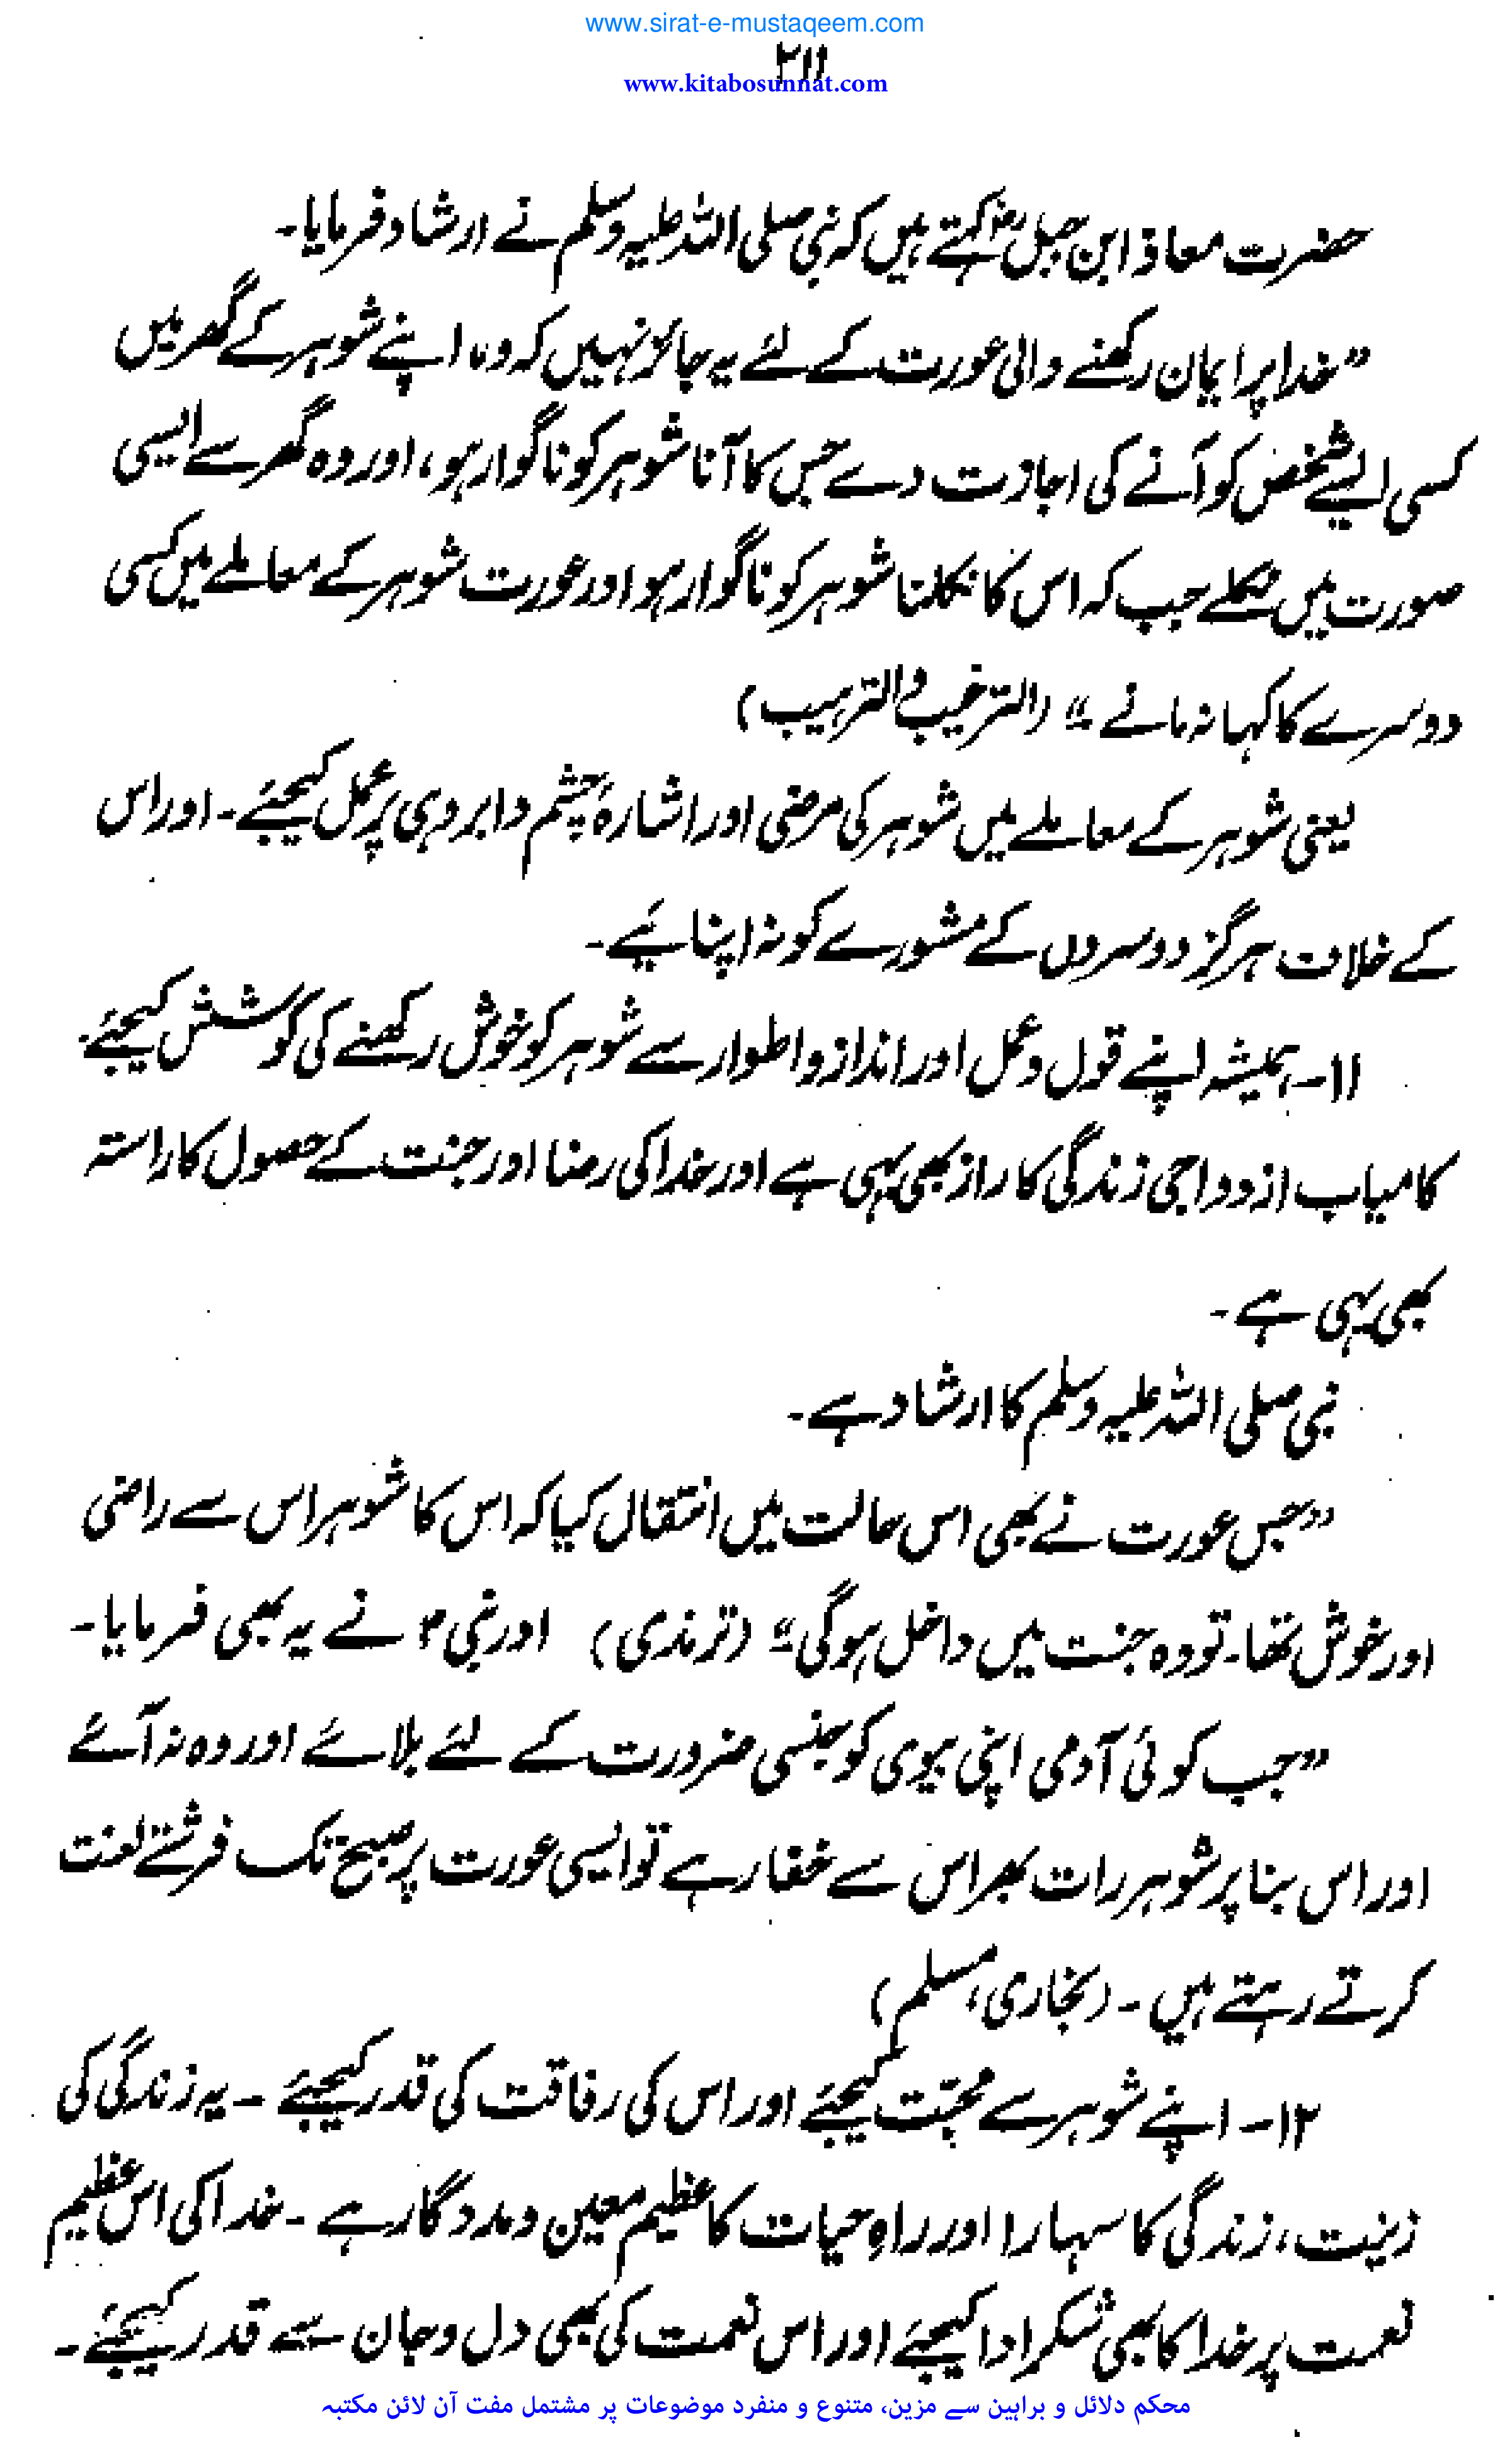 www.sirat-e-mustaqeem.com
۲۱۱
www.kitabosunnat.com
حضرت معاذ ابن جبلؓ کہتے ہیں کہ نبی صلی اللہ علیہ وسلم نے ارشاد فرمایا۔
”خدا پر ایمان رکھنے والی عورت کے لئے یہ جائز نہیں کہ وہ اپنے شوہر کے گھر میں
کسی ایسے شخص کو آنے کی اجازت دے جس کا آنا شوہر کو ناگوار ہو، اور وہ گھر سے ایسی
صورت میں نکلے جب کہ اس کا نکلنا شوہر کو ناگوار ہو اور عورت شوہر کے معاملے میں کسی
دوسرے کا کہا نہ مانے۔“ (الترغیب والترہیب)
یعنی شوہر کے معاملے میں شوہر کی مرضی اور اشارۂ چشم و ابرو ہی پر عمل کیجئے۔ اور اس
کے خلاف ہرگز دوسروں کے مشورے کو نہ اپنائیے۔
۱۱۔ ہمیشہ اپنے قول و عمل اور انداز و اطوار سے شوہر کو خوش رکھنے کی کوشش کیجئے۔
کامیاب ازدواجی زندگی کا راز بھی یہی ہے اور خدا کی رضا اور جنت کے حصول کا راستہ
بھی یہی ہے۔
نبی صلی اللہ علیہ وسلم کا ارشاد ہے۔
”جس عورت نے بھی اس حالت میں انتقال کیا کہ اس کا شوہر اس سے راضی
اور خوش تھا۔ تو وہ جنت میں داخل ہوگی۔“ (ترمذی) اور نبیؐ نے یہ بھی فرمایا۔
”جب کوئی آدمی اپنی بیوی کو جنسی ضرورت کے لئے بلائے اور وہ نہ آئے
اور اس بنا پر شوہر رات بھر اس سے خفا رہے تو ایسی عورت پر صبح تک فرشتے لعنت
کرتے رہتے ہیں۔ (بخاری، مسلم)
۱۲۔ اپنے شوہر سے محبّت کیجئے اور اس کی رفاقت کی قدر کیجئے۔ یہ زندگی کی
زینت، زندگی کا سہارا اور راہِ حیات کا عظیم معین و مددگار ہے۔ خدا کی اس عظیم
نعمت پر خدا کا بھی شکر ادا کیجئے اور اس نعمت کی بھی دل و جان سے قدر کیجئے۔
محکم دلائل و براہین سے مزین، متنوع و منفرد موضوعات پر مشتمل مفت آن لائن مکتبہ